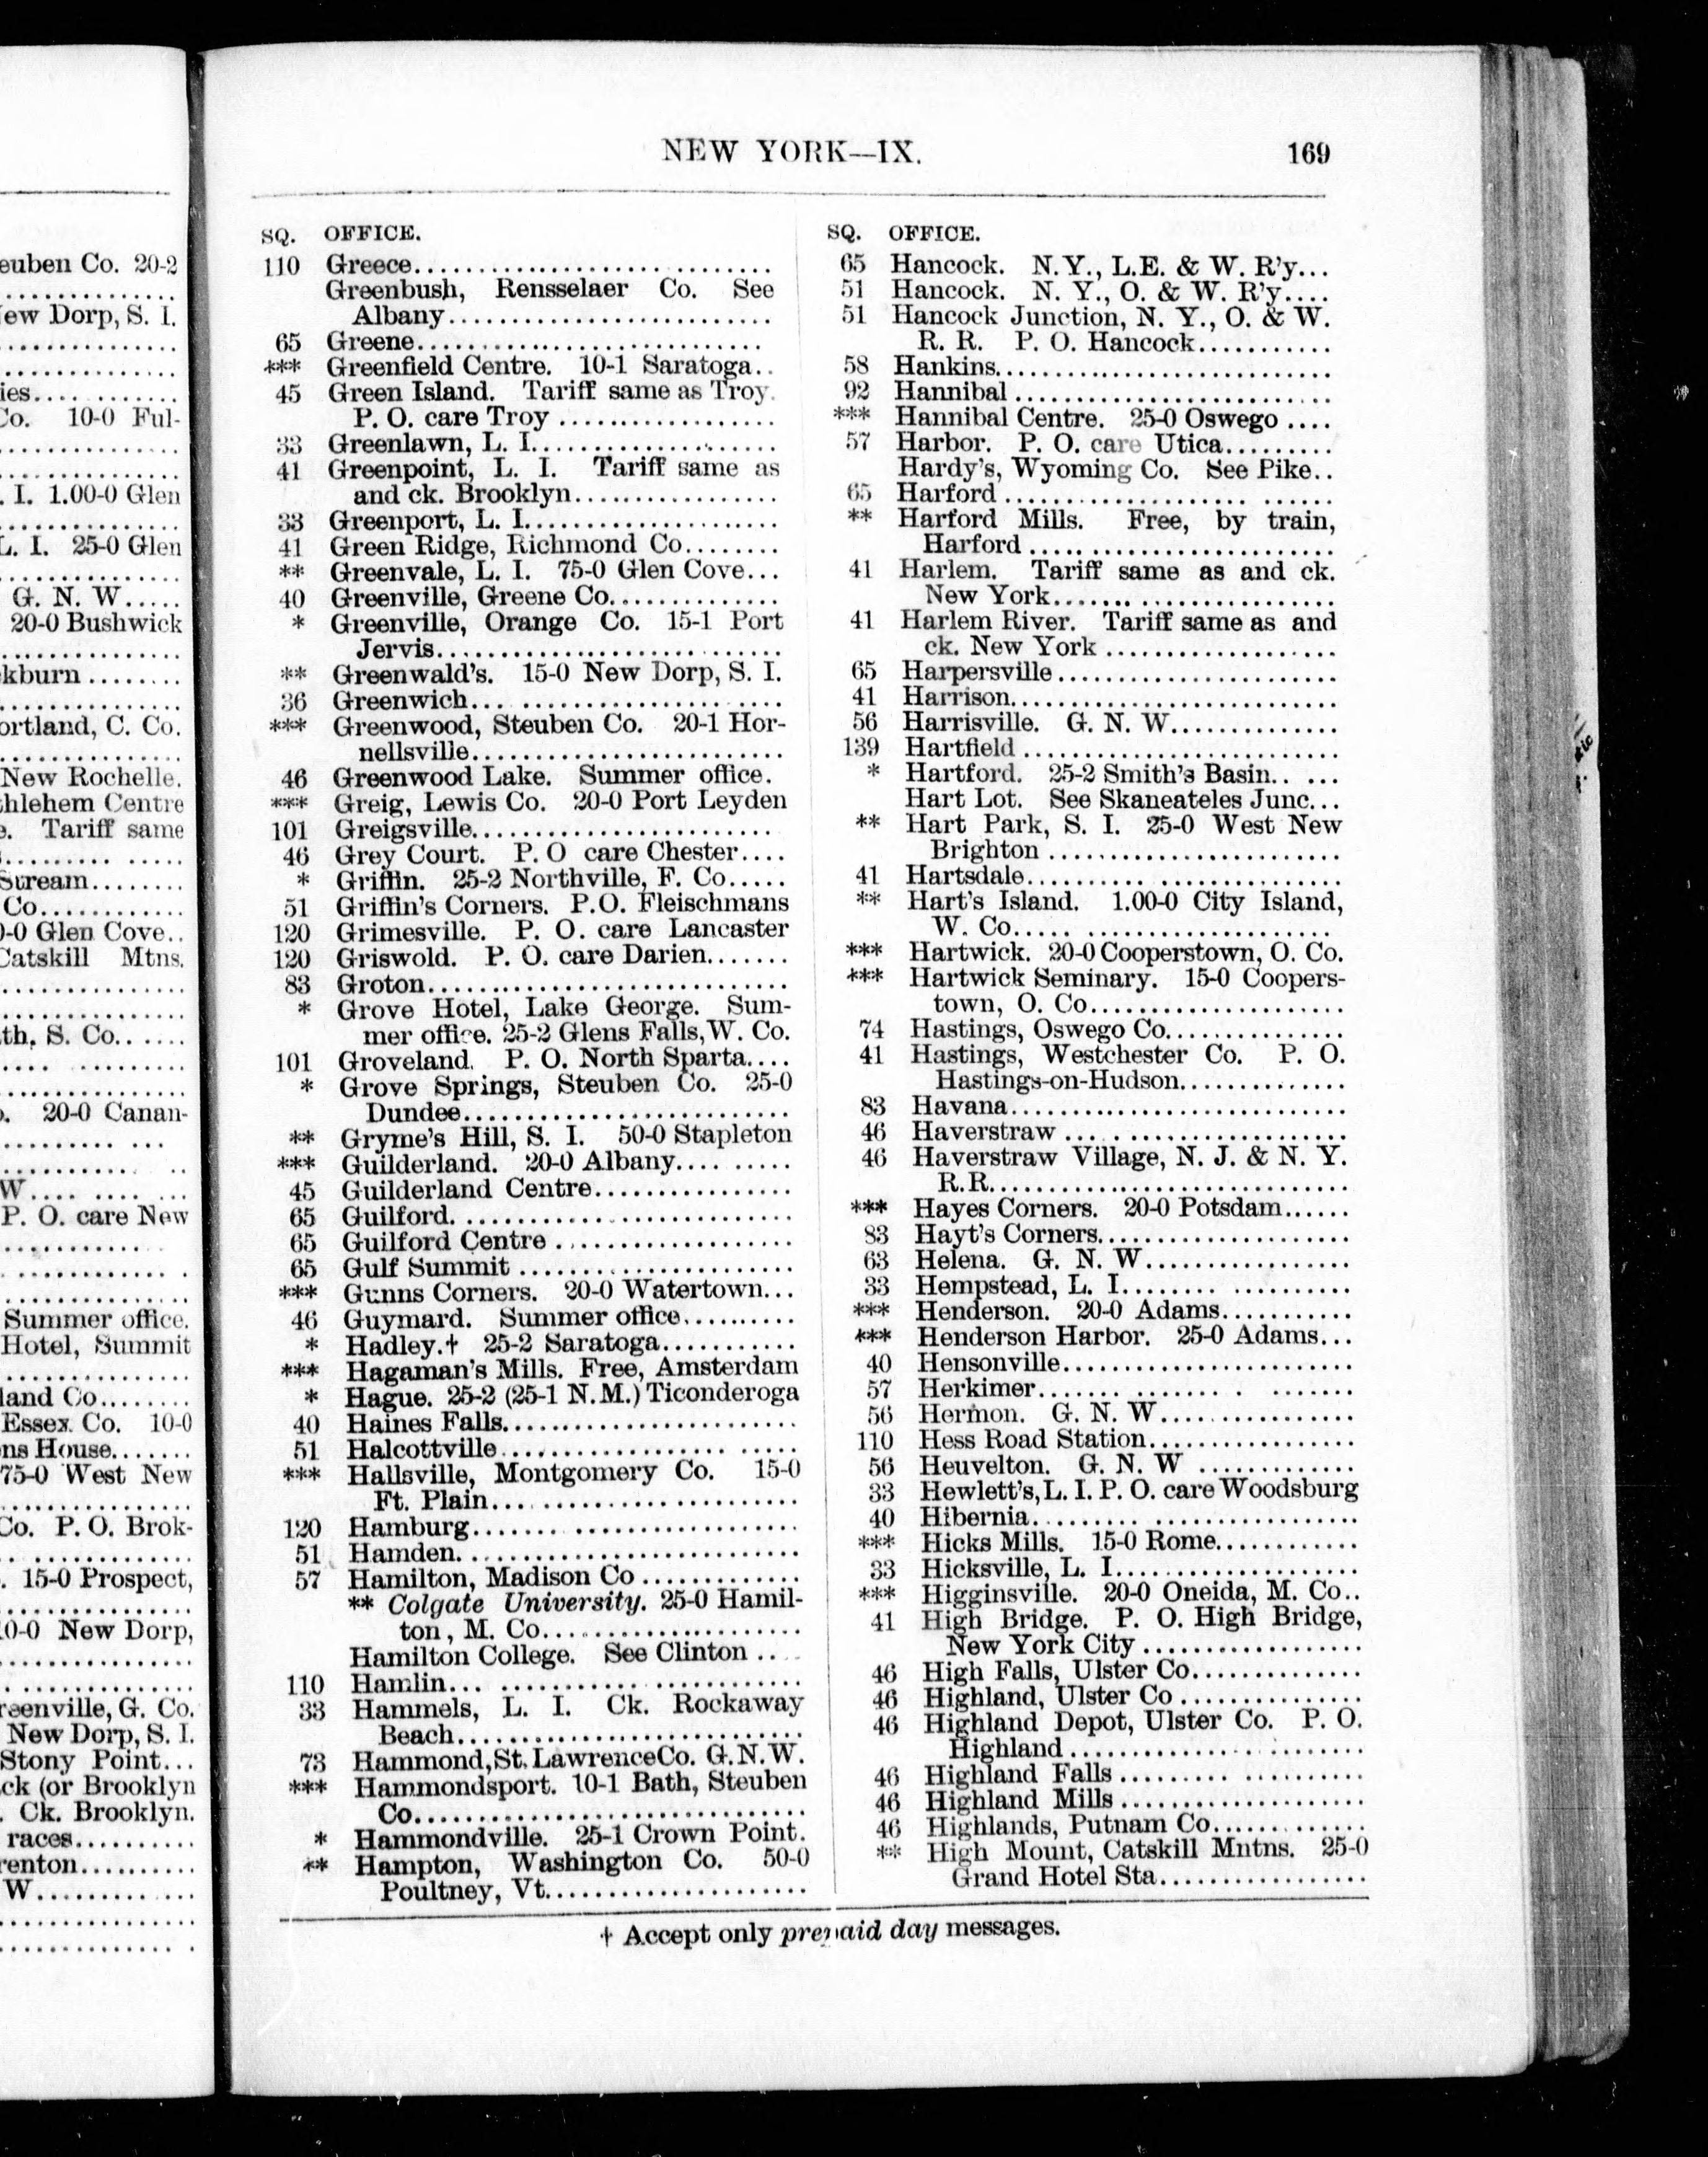 euben Co. 20-2
New Dorp, S. I.
ies
Co. 10-0 Ful-
. I. 1.00-0 Glen
L. I. 25-0 Glen
G. N. W.....
20-0 Bushwick
kburn ........
ortland, C. Co.
New Rochelle.
hlehem Centre
e. Tariff same
Stream........
Co.............
0-0 Glen Cove..
Catskill Mtns.
th, S. Co.......
o. 20-0 Canan-
W....
P. O. care New
Summer office.
Hotel, Summit
land Co........
Essex Co. 10-0
ns House.......
75-0 West New
Co. P. O. Brok-
. 15-0 Prospect,
0-0 New Dorp,
reenville, G. Co.
New Dorp, S. I.
Stony Point...
ck (or Brooklyn
. Ck. Brooklyn.
races..........
renton..........
W.............
NEW YORK—IX. 169
SQ. OFFICE.
110 Greece............................
Greenbush, Rensselaer Co. See
Albany..........................
65 Greene............................
*** Greenfield Centre. 10-1 Saratoga..
45 Green Island. Tariff same as Troy.
P. O. care Troy .................
33 Greenlawn, L. I...................
41 Greenpoint, L. I. Tariff same as
and ck. Brooklyn................
33 Greenport, L. I....................
41 Green Ridge, Richmond Co........
** Greenvale, L. I. 75-0 Glen Cove...
40 Greenville, Greene Co..............
* Greenville, Orange Co. 15-1 Port
Jervis...........................
** Greenwald's. 15-0 New Dorp, S. I.
36 Greenwich........................
*** Greenwood, Steuben Co. 20-1 Hor-
nellsville........................
46 Greenwood Lake. Summer office.
*** Greig, Lewis Co. 20-0 Port Leyden
101 Greigsville........................
46 Grey Court. P. O care Chester....
* Griffin. 25-2 Northville, F. Co.....
51 Griffin's Corners. P.O. Fleischmans
120 Grimesville. P. O. care Lancaster
120 Griswold. P. O. care Darien.......
83 Groton............................
* Grove Hotel, Lake George. Sum-
mer office. 25-2 Glens Falls, W. Co.
101 Groveland. P. O. North Sparta....
* Grove Springs, Steuben Co. 25-0
Dundee..........................
** Gryme's Hill, S. I. 50-0 Stapleton
*** Guilderland. 20-0 Albany..........
45 Guilderland Centre................
65 Guilford...........................
65 Guilford Centre ...................
65 Gulf Summit ......................
*** Gunns Corners. 20-0 Watertown...
46 Guymard. Summer office..........
* Hadley.† 25-2 Saratoga...........
*** Hagaman's Mills. Free, Amsterdam
* Hague. 25-2 (25-1 N.M.) Ticonderoga
40 Haines Falls.......................
51 Halcottville.......................
*** Hallsville, Montgomery Co. 15-0
Ft. Plain........................
120 Hamburg.........................
51 Hamden...........................
57 Hamilton, Madison Co .............
** Colgate University. 25-0 Hamil-
ton, M. Co......................
Hamilton College. See Clinton ....
110 Hamlin...........................
33 Hammels, L. I. Ck. Rockaway
Beach...........................
73 Hammond, St. Lawrence Co. G. N. W.
*** Hammondsport. 10-1 Bath, Steuben
Co..............................
* Hammondville. 25-1 Crown Point.
** Hampton, Washington Co. 50-0
Poultney, Vt.....................
SQ. OFFICE.
65 Hancock. N.Y., L.E. & W. R'y...
51 Hancock. N. Y., O. & W. R'y....
51 Hancock Junction, N. Y., O. & W.
R. R. P. O. Hancock...........
58 Hankins...........................
92 Hannibal .........................
*** Hannibal Centre. 25-0 Oswego ....
57 Harbor. P. O. care Utica.........
Hardy's, Wyoming Co. See Pike..
65 Harford ..........................
** Harford Mills. Free, by train,
Harford ........................
41 Harlem. Tariff same as and ck.
New York.......................
41 Harlem River. Tariff same as and
ck. New York ..................
65 Harpersville.......................
41 Harrison...........................
56 Harrisville. G. N. W..............
139 Hartfield .........................
* Hartford. 25-2 Smith's Basin.. ...
Hart Lot. See Skaneateles Junc...
** Hart Park, S. I. 25-0 West New
Brighton .......................
41 Hartsdale.........................
** Hart's Island. 1.00-0 City Island,
W. Co...........................
*** Hartwick. 20-0 Cooperstown, O. Co.
*** Hartwick Seminary. 15-0 Coopers-
town, O. Co.....................
74 Hastings, Oswego Co...............
41 Hastings, Westchester Co. P. O.
Hastings-on-Hudson..............
83 Havana............................
46 Haverstraw .......................
46 Haverstraw Village, N. J. & N. Y.
R.R.............................
*** Hayes Corners. 20-0 Potsdam......
83 Hayt's Corners.....................
63 Helena. G. N. W..................
33 Hempstead, L. I...................
*** Henderson. 20-0 Adams...........
*** Henderson Harbor. 25-0 Adams...
40 Hensonville........................
57 Herkimer..........................
56 Hermon. G. N. W................
110 Hess Road Station.................
56 Heuvelton. G. N. W .............
33 Hewlett's, L. I. P. O. care Woodsburg
40 Hibernia...........................
*** Hicks Mills. 15-0 Rome............
33 Hicksville, L. I....................
*** Higginsville. 20-0 Oneida, M. Co..
41 High Bridge. P. O. High Bridge,
New York City ..................
46 High Falls, Ulster Co..............
46 Highland, Ulster Co ...............
46 Highland Depot, Ulster Co. P. O.
Highland........................
46 Highland Falls ....................
46 Highland Mills ....................
46 Highlands, Putnam Co.............
** High Mount, Catskill Mntns. 25-0
Grand Hotel Sta.................
† Accept only prepaid day messages.